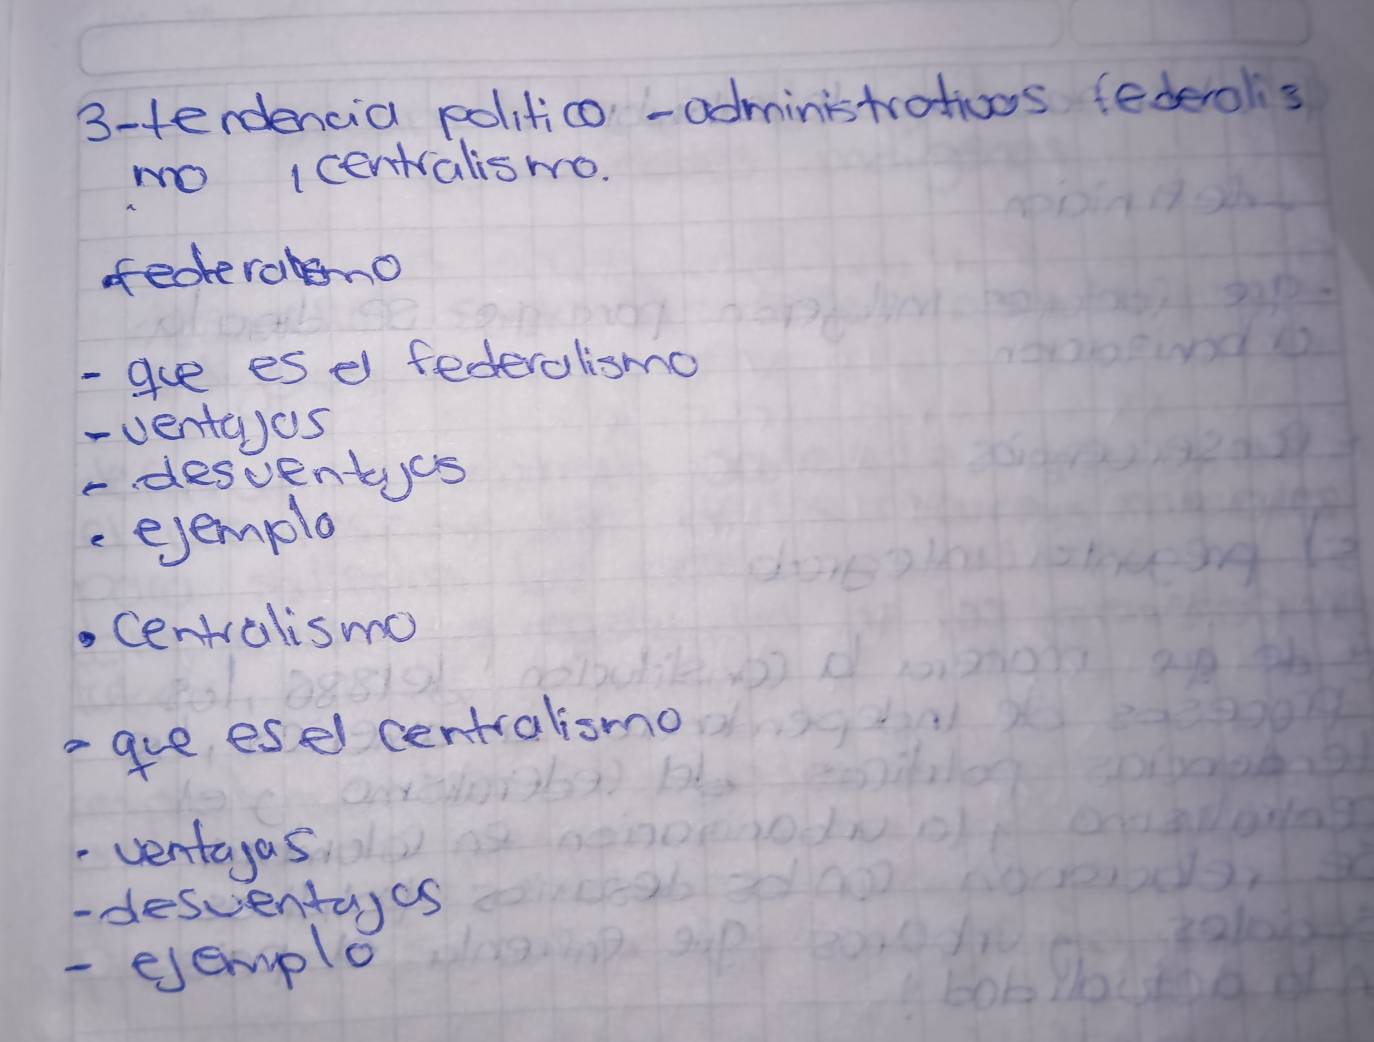 3-tendencia politico - administrativos federalis
mo , centralismo.
federalismo
- que es el federalismo
- ventajas
- desventajas
• ejemplo
• Centralismo
- que es el centralismo
• ventajas
- desventajas
- ejemplo